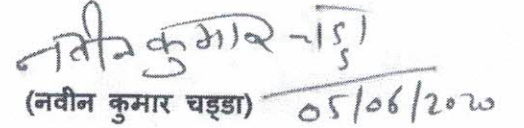 नवीन कुमार चड्डा
(नवीन कुमार चड्डा) 05/06/2020